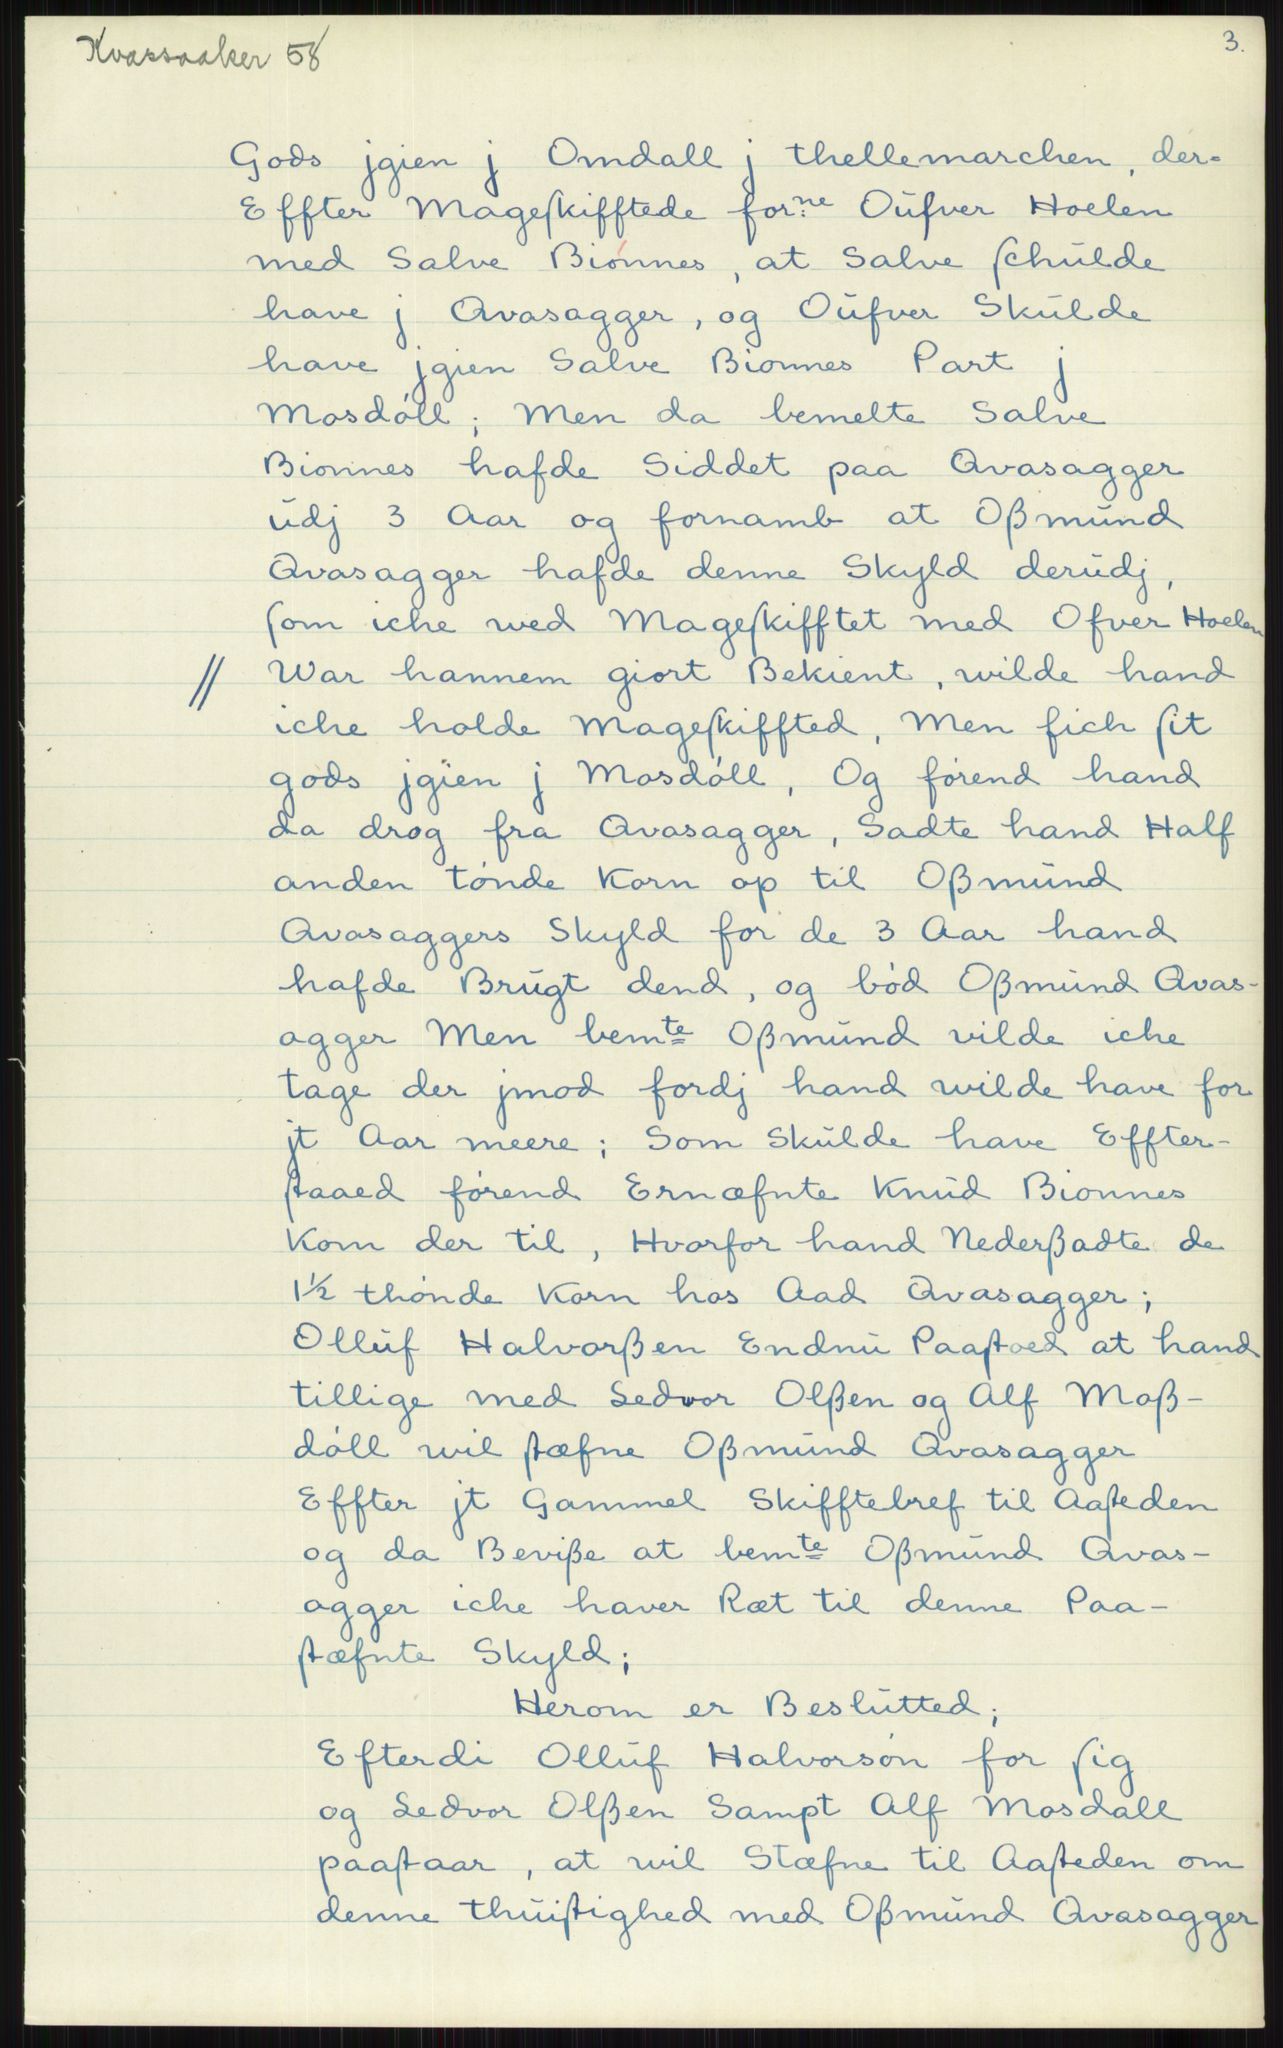 Kvassaaker 58
3.
Gods jgien j Omdall j thellemarchen, der-
Effter Mageskifftede forne Oúfver Hoelen
med Salve Biónnes, at Salve schúlde
have j Qvasagger, og Oúfver Skúlde
have jgien Salve Bionnes Part j
Mosdóll; Men da bemelte Salve
Bionnes hafde Siddet paa Qvasagger
údj 3 Aar og fornamb at Oßmúnd
Qvasagger hafde denne Skyld derúdj,
som iche wed Mageskifftet med Ofver Hoelen
// War hannem giort Bekient, wilde hand
iche holde Mageskiffted, Men fich sit
gods jgien j Mosdóll, Og fórend hand
da drog fra Qvasagger, Sadte hand Half
anden tónde Korn op til Oßmúnd
Qvasaggers Skyld for de 3 Aar hand
hafde Brúgt dend, og bód Oßmúnd Qvas-
agger Men bemte Oßmúnd vilde iche
tage der jmod fordj hand wilde have for
jt Aar meere; Som Skúlde have Effter-
staaed fórend Ernæfnte Knúd Bionnes
Kom der til, Hvorfor hand Nederßadte de
1½ thónde Korn hos Aad Qvasagger;
Ollúf Halvorßen Endnú Paastoed at hand
tillige med Sedvor Olßen og Alf Moß-
dóll wil stæfne Oßmúnd Qvasagger
Effter jt Gammel Skifftebref til Aasteden
og da Beviße at bemte Oßmúnd Qvas-
agger iche haver Ræt til denne Paa-
stæfnte Skyld;
Herom er Beslútted;
Efterdi Ollúf Halvorsón for sig
og Sedvor Olßen Sampt Alf Mosdall
paastaar, at wil Stæfne til Aasteden om
denne thúistighed med Oßmúnd Qvasagger